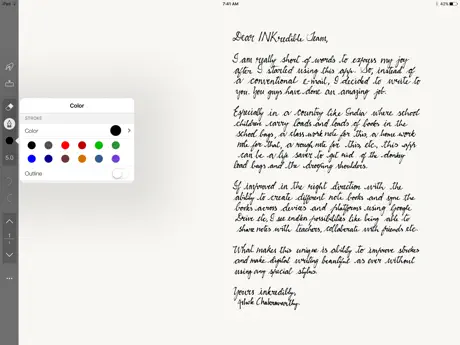 iPad
7:41 AM
62%
Color
STROKE
Color
Outline
5.0
Dear INKredible Team,
I am really short of words to express my joy
after I started using this app. So, instead of
a conventional e-mail, I decided to write to
you. You guys have done an amazing job.
Especially in a country like India where school
children carry loads and loads of books in the
school bags, a class work note for this, a home work
note for that, a rough note for this, etc., this app
can be a life saver to get rid of the donkey
load bags and the drooping shoulders.
If improved in the right direction with the
ability to create different note books and sync the
books across devices and platforms using Google
Drive etc, I see endless possibilities like being able to
share notes with teachers, collaborate with friends etc.
What makes this unique is ability to improve strokes
and make digital writing beautiful as ever without
using any special stylus.
Yours inkredibly,